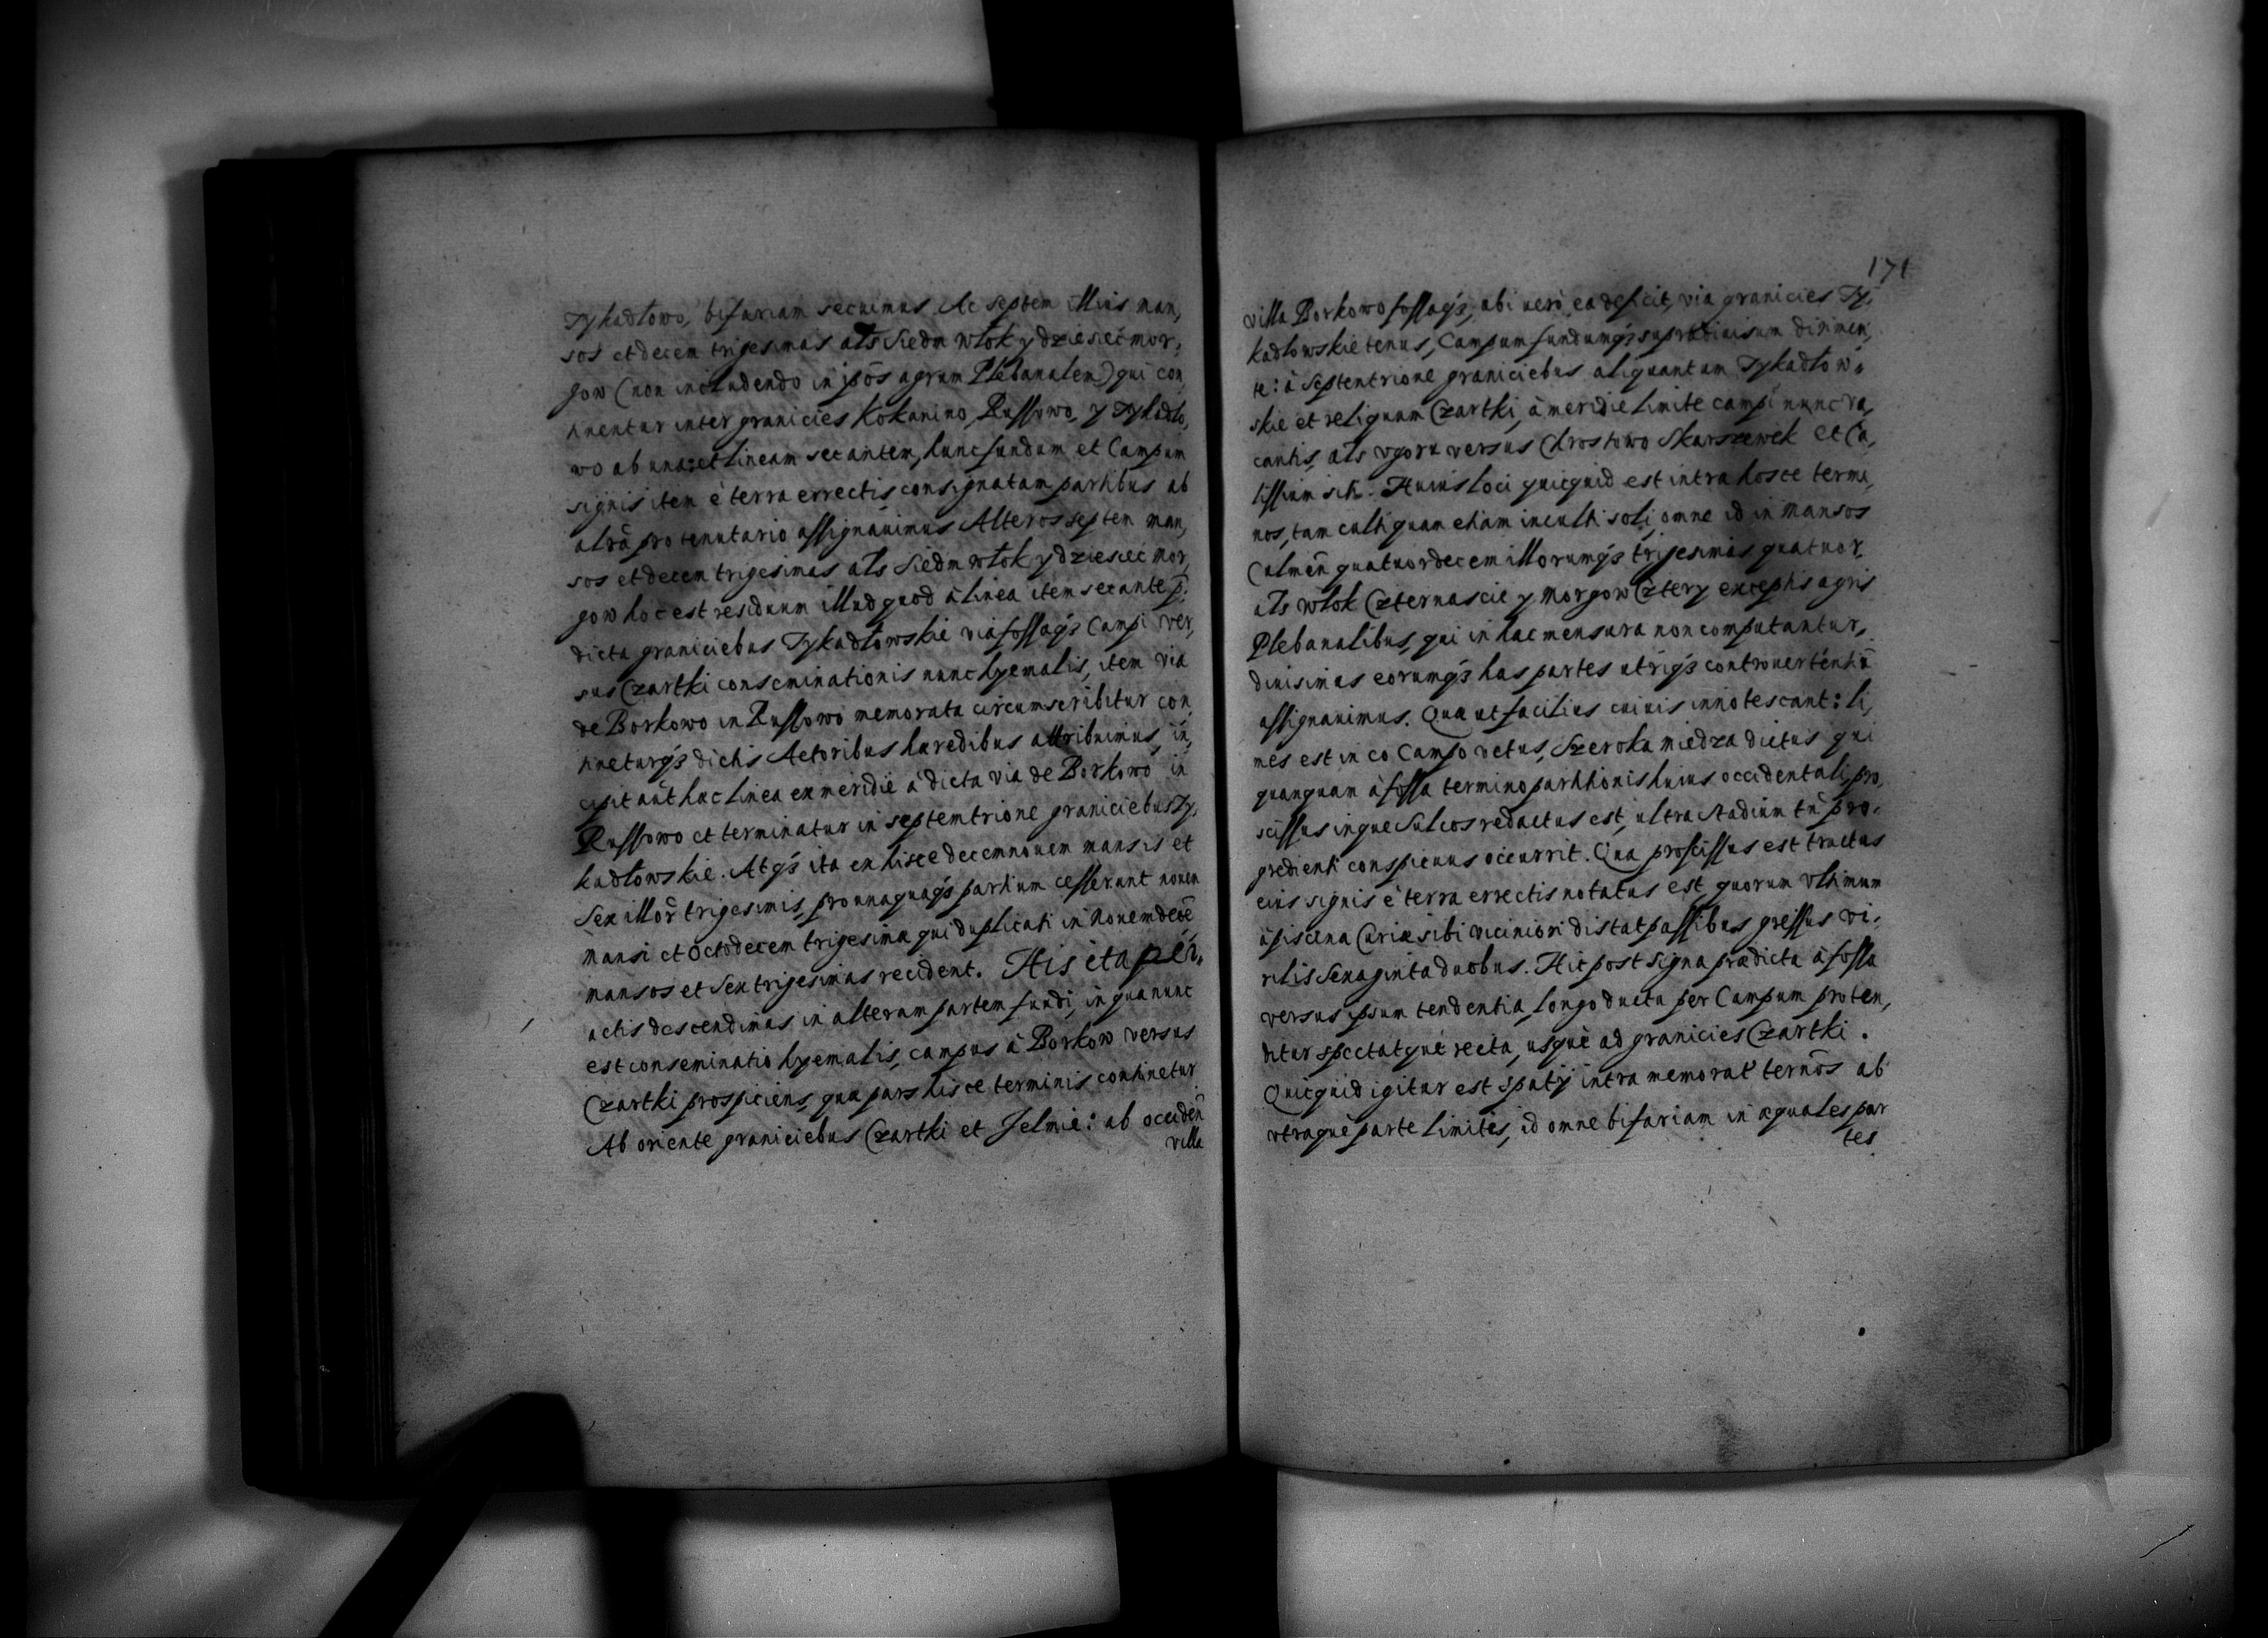 Tykadłowo, bifariam secuimus. Ac septem illius man,
sos et decem trigesimas als Siedm włok y dziesięć mor,
gow (non includendo in ipōs agrum Plebanalem) qui con
tinentur inter granicies Kokanino, Russowo, y Tykadło,
wo ab una: et lineam secantem, hunc fundum et Campum
signis item è terra errectis consignatam partibus ab
alrā pro tenutario assignauimus Alteros septem man,
sos et decem trigesimas als Siedm włok y dziesięć mor,
gow hoc est residuum illud quod à linea item secante p̄,
dicta graniciebus Tykadłowskie via fossaq́ Campi ver,
sus Czartki conseminationis nunc hyemalis, item via
de Borkowo in Russowo memorata circumscribitur con
tineturq́ dictis Actoribus haredibus attribuimus, in,
cipit aūt hac linea ex meridie à dicta via de Borkowo in
Russowo et terminatur in septemtrione graniciebus Ty,
kadłowskie. Atq́ ita ex hisce decemnouem mansis et
Sex illor̄ trigesimis, pro unaquaq́ partium cesserunt nouem
mansi et octodecem trigesima qui duplicati in nouemdecē
mansos et Sex trigesimas recident. His ita per,
actis descendimus in alteram partem fundi, in qua nunc
est conseminatio hyemalis, campus à Borkow versus
Czartki prospiciens, qua pars hisce terminis continetur
Ab oriente graniciebus Czartki et Jelmie: ab occidēn
villa
171
villa Borkowo fossaq́, ubi uerò ea deficit, via granicies Ty,
kadłowskie tenus, Campum fundumq́ supradiuisum dirimen,
te: à Septentrione graniciebus aliquantum Tykadłow,
skie et reliquum Czartki, à meridie limite campi nunc va,
cantis, als ugoru versus Chrostowo Skarszewek et Ca,
lissium siti. Huius loci quicquid est intra hosce termi,
nos, tam culti quam etiam inculti soli, omne id in mansos
Culmēn quatuordecem illorumq́ trigesimas quatuor
als włok Czternascie y morgow Cztery exceptis agris
Plebanalibus, qui in hac mensura non computantur,
diuisimus eorumq́ has partes utriq́ controuertentiū
assignauimus. Qua ut facilius cuiuis innotescant: li,
mes est in eo Campo vetus, Szeroka miedza dictus qui
quanquam à fossa termino partitionis huius occidentali, pro,
scissus inque Sulcos redactus est, ultra Stadium tn̄ pro,
gredienti conspicuus occurrit. Qua proscissus est tractus
eius signis è terra errectis notatus est, quorum ultimum
à piscina Curiæ sibi viciniori distat passibus gressus vi,
rilis Sexaginta duobus. Hic post signa prædicta à fossa
versus ipsum tendentia, longo ductu per Campum proten,
ditur spectatque recta, usque ad granicies Czartki.
Quicquid igitur est spatij intra memorat terno͞s ab
utraque parte limites, id omne bifariam in æquales par
tes